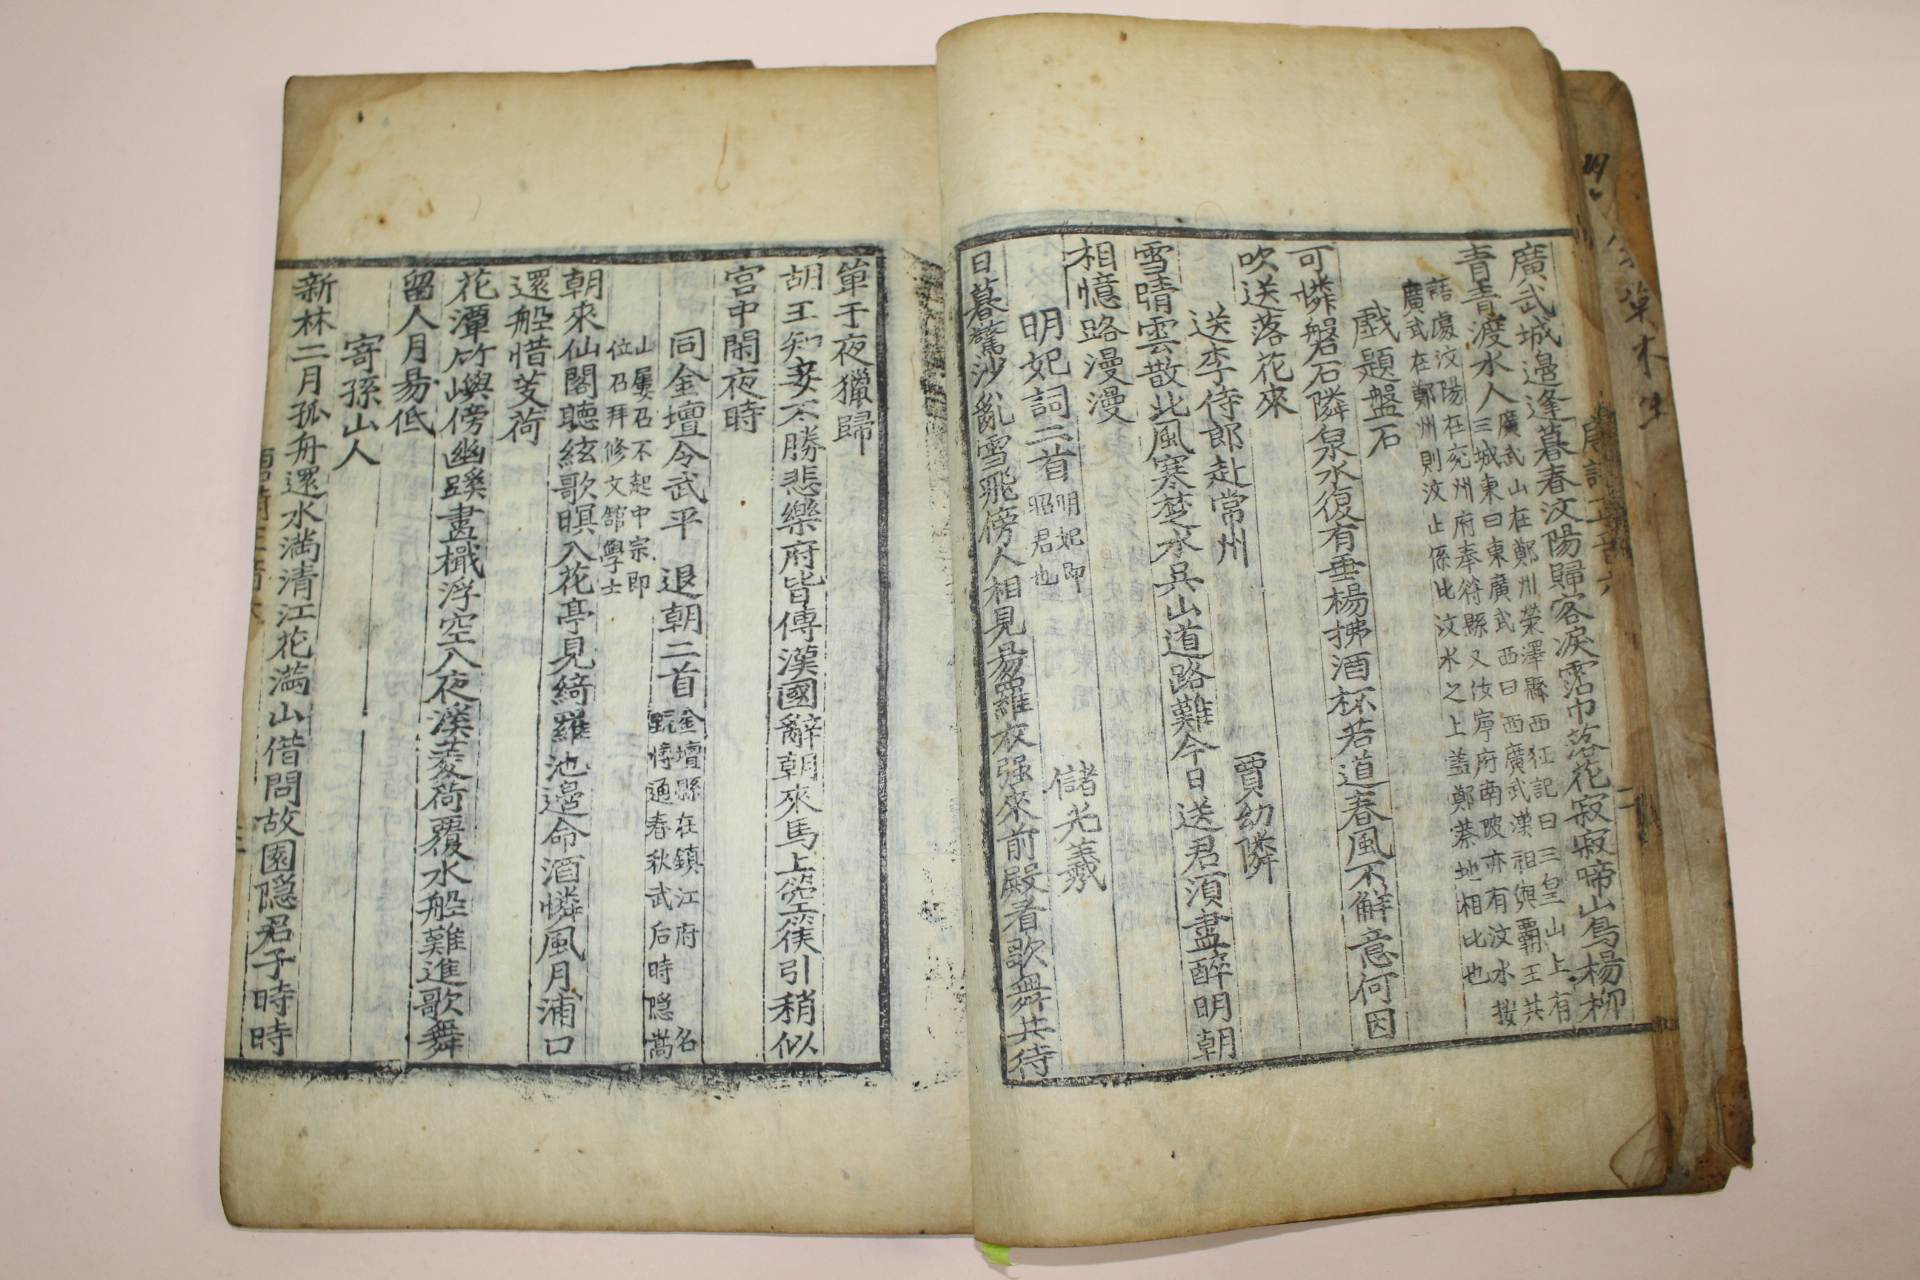 廣武城邉逢暮春汶陽歸客淚霑巾落花寂寂啼山鳥楊柳
青青渡水人
廣武山在鄭州滎澤縣西征記曰三皇山上有
三城東曰東廣武西曰西廣武漢祖與覇王共
語處汶陽在兖州府奉符縣又汝寧府南陂亦有汶水按
廣武在鄭州則汶止係比汶水之上盖鄭蔡地相比也
戱題盤石
可憐磐石隣泉水復有垂楊拂酒杯若道春風不解意何因
吹送落花來
送李侍郎赴常州 賈幼隣
雪晴雲散北風寒楚水吳山道路難今日送君須盡醉明朝
相憶路漫漫
明妃詞二首 明妃即昭君也 儲光羲
日暮驚沙亂雪飛傍人相見易羅衣强來前殿看歌舞共待
單于夜獵歸
胡王知妾不勝悲樂府皆傳漢國辭朝來馬上箜篌引稍似
宮中閑夜時
同金壇令武平 退朝二首
金壇縣在鎮江府 名
甄將通春秋武后時隱嵩
山屢召不起中宗即
位召拜修文館學士
朝來仙閣聽絃歌暝入花亭見綺羅池邉命酒憐風月浦口
還船惜芰荷
花潭竹嶼傍幽蹊畫檝浮空入夜溪菱荷覆水船難進歌舞
留人月易低
寄孫山人
新林二月孤舟還水滿清江花滿山借問故園隱君子時時